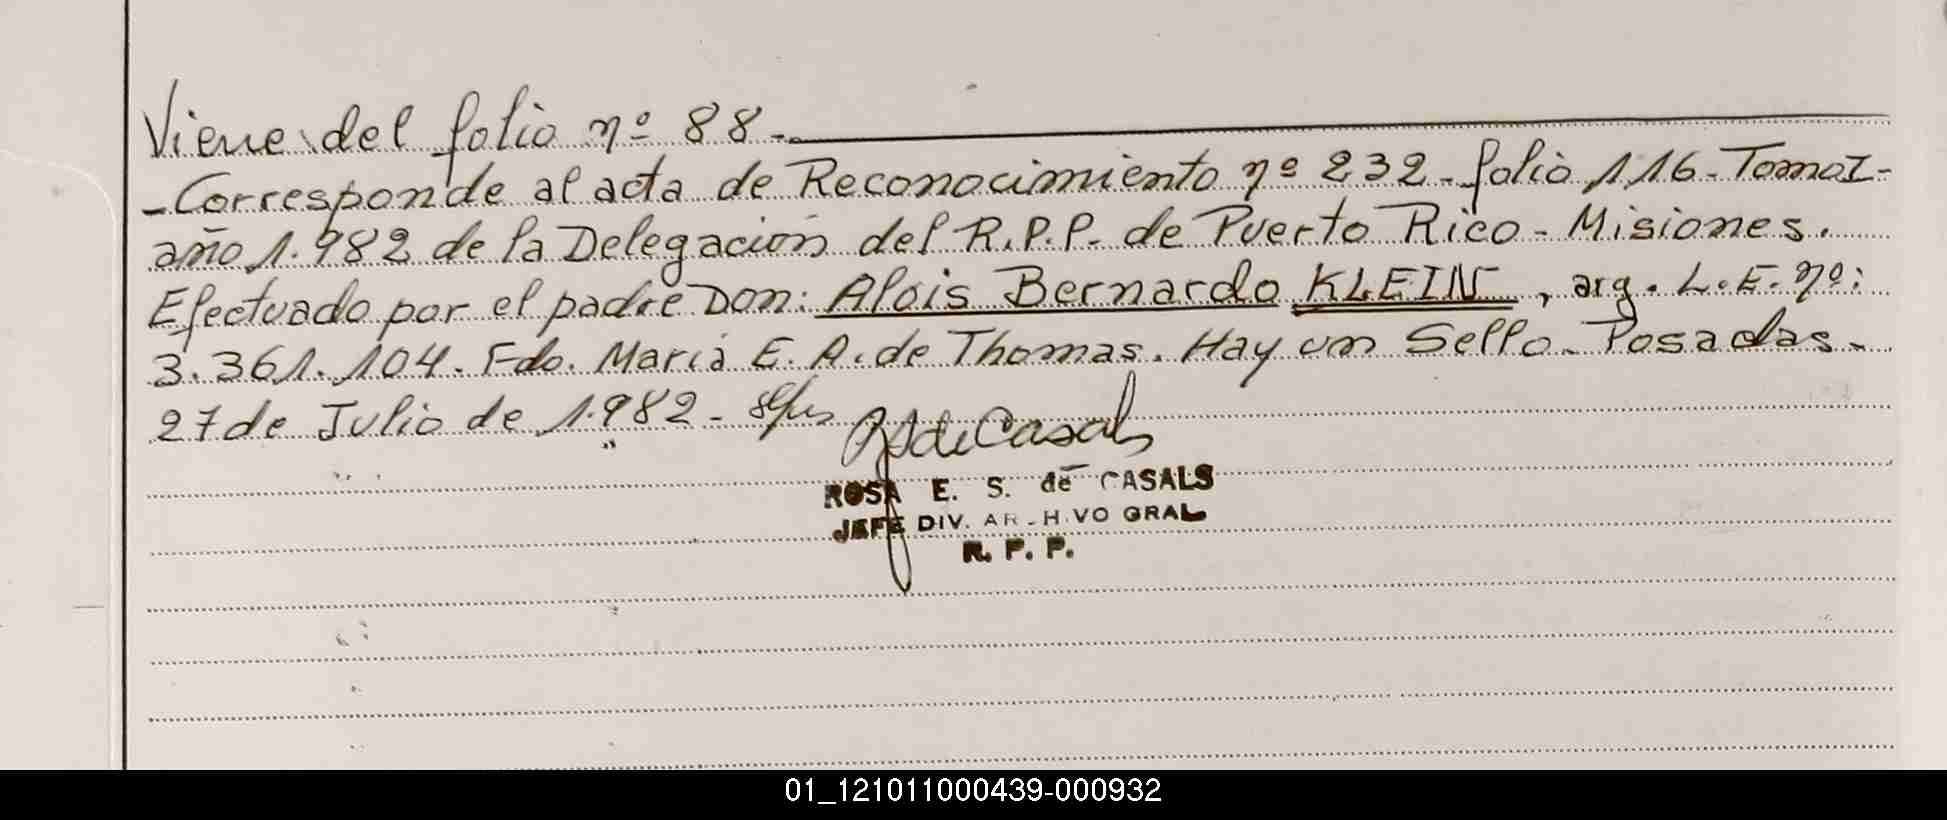 Viene del folio nº 88.-
-Corresponde al acta de Reconocimiento nº 232- folio 116- Tomo I-
año 1.982 de la Delegación del R.P.P. de Puerto Rico- Misiones.
Efectuado por el padre Don: Alois Bernardo KLEIN, arg. L.E. nº:
3.361.104. Fdo. María E. A. de Thomas. Hay un Sello. Posadas-
27 de Julio de 1.982-
de Casals
ROSA E. S. de CASALS
JEFE DIV. ARCHIVO GRAL
R. P. P.
01_121011000439-000932